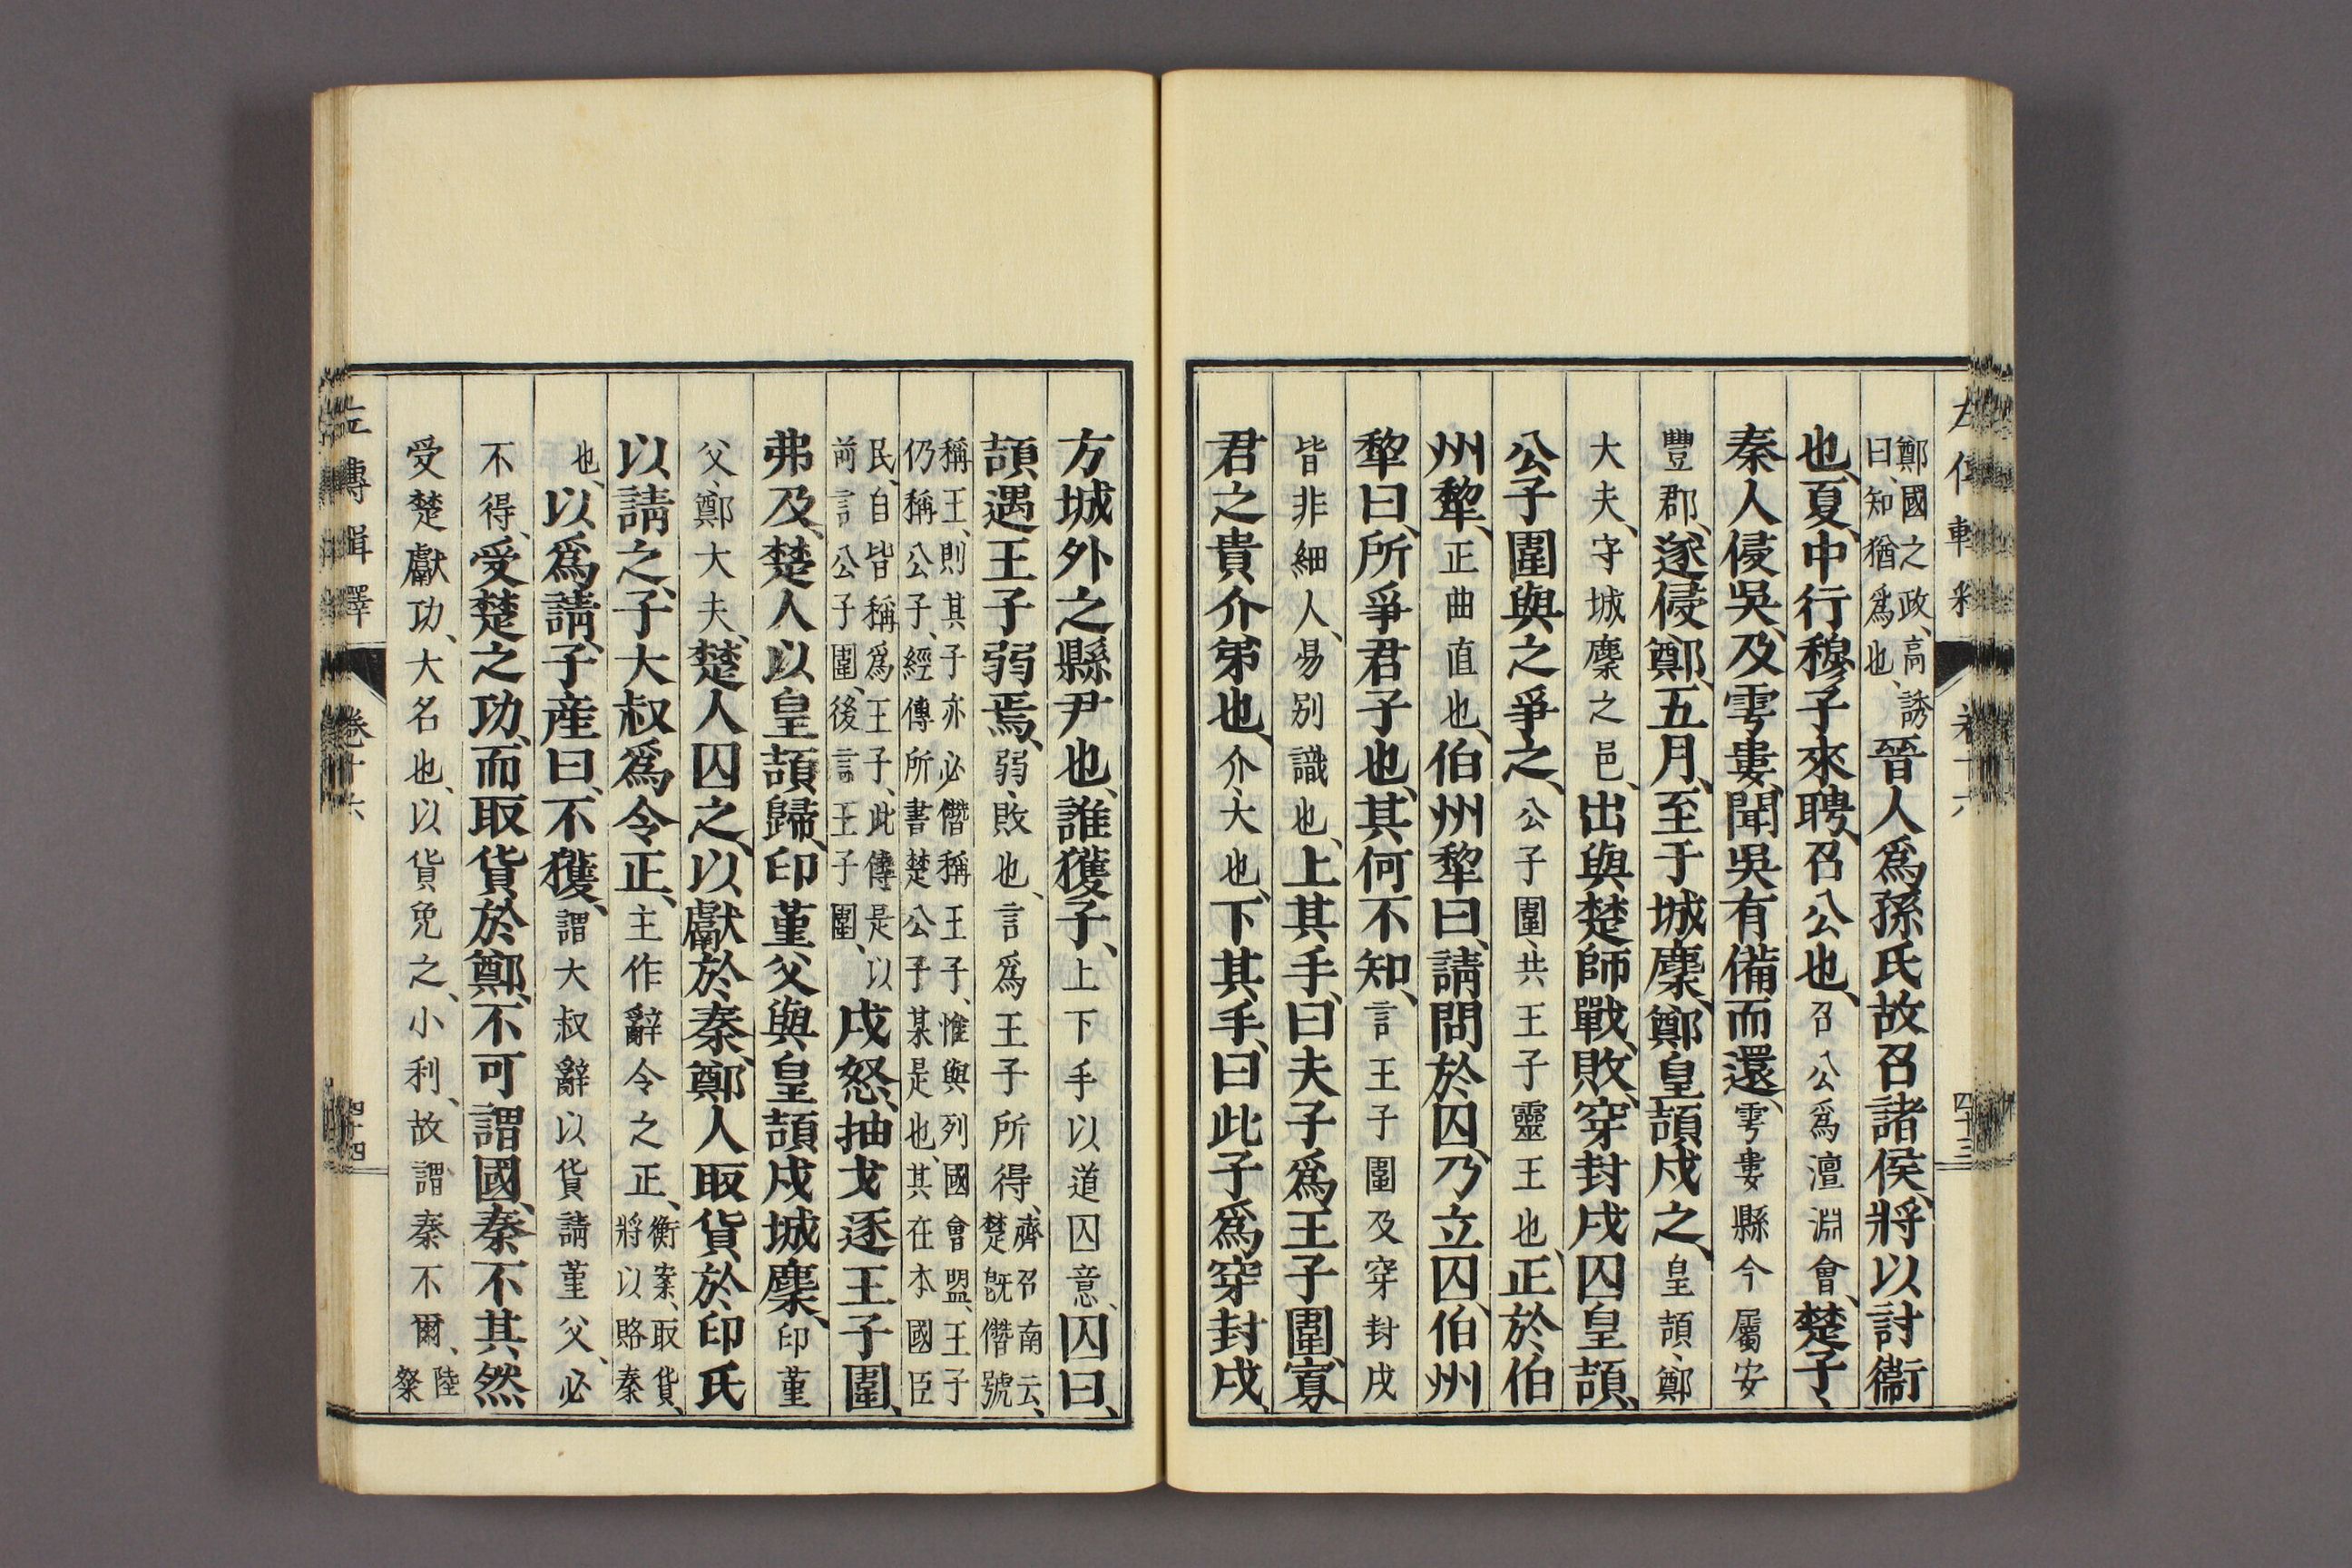 鄭國之政、高誘
曰、知猶爲也、
晉人爲孫氏故召諸侯、將以討衞
也、夏、中行穆子來聘、召公也、召公爲澶淵會、楚子、
秦人侵吳、及雩婁、聞吳有備而還、雩婁縣今屬安
豐郡、遂侵鄭、五月、至于城麇、鄭皇頡戍之、皇頡、鄭
大夫、守城麇之邑、出與楚師戰、敗、穿封戌囚皇頡、
公子圍與之爭之、公子圍、共王子靈王也、正於伯
州犂、正曲直也、伯州犂曰、請問於囚、乃立囚、伯州
犂曰、所爭君子也、其何不知、言王子圍及穿封戌
皆非細人、易別識也、上其手、曰夫子爲王子圍、寡
君之貴介弟也、介、大也、下其手、曰此子爲穿封戌、
四十三
方城外之縣尹也、誰獲子、上下手以道囚意、囚曰、
頡遇王子弱焉、弱、敗也、言爲王子所得、
齊召南云、
楚旣僭號
稱王、則其子亦必僭稱王子、惟與列國會盟、王子
仍稱公子、經傳所書楚公子某是也、其在本國臣
民、自皆稱爲王子、此傳是以
前言公子圍、後言王子圍、
戌怒、抽戈逐王子圍、
弗及、楚人以皇頡歸、印堇父與皇頡戍城麇、印堇
父、鄭大夫、楚人囚之、以獻於秦、鄭人取貨於印氏
以請之、子大叔爲令正、主作辭令之正、
衡案、取貨、
將以賂秦
也、
以爲請、子産曰、不獲、謂大叔辭以貨請堇父、必
不得、受楚之功、而取貨於鄭、不可謂國、秦不其然
受楚獻功、大名也、以貨免之、小利、故謂秦不爾、
陸
粲
左傳輯釋
卷十六
四十四